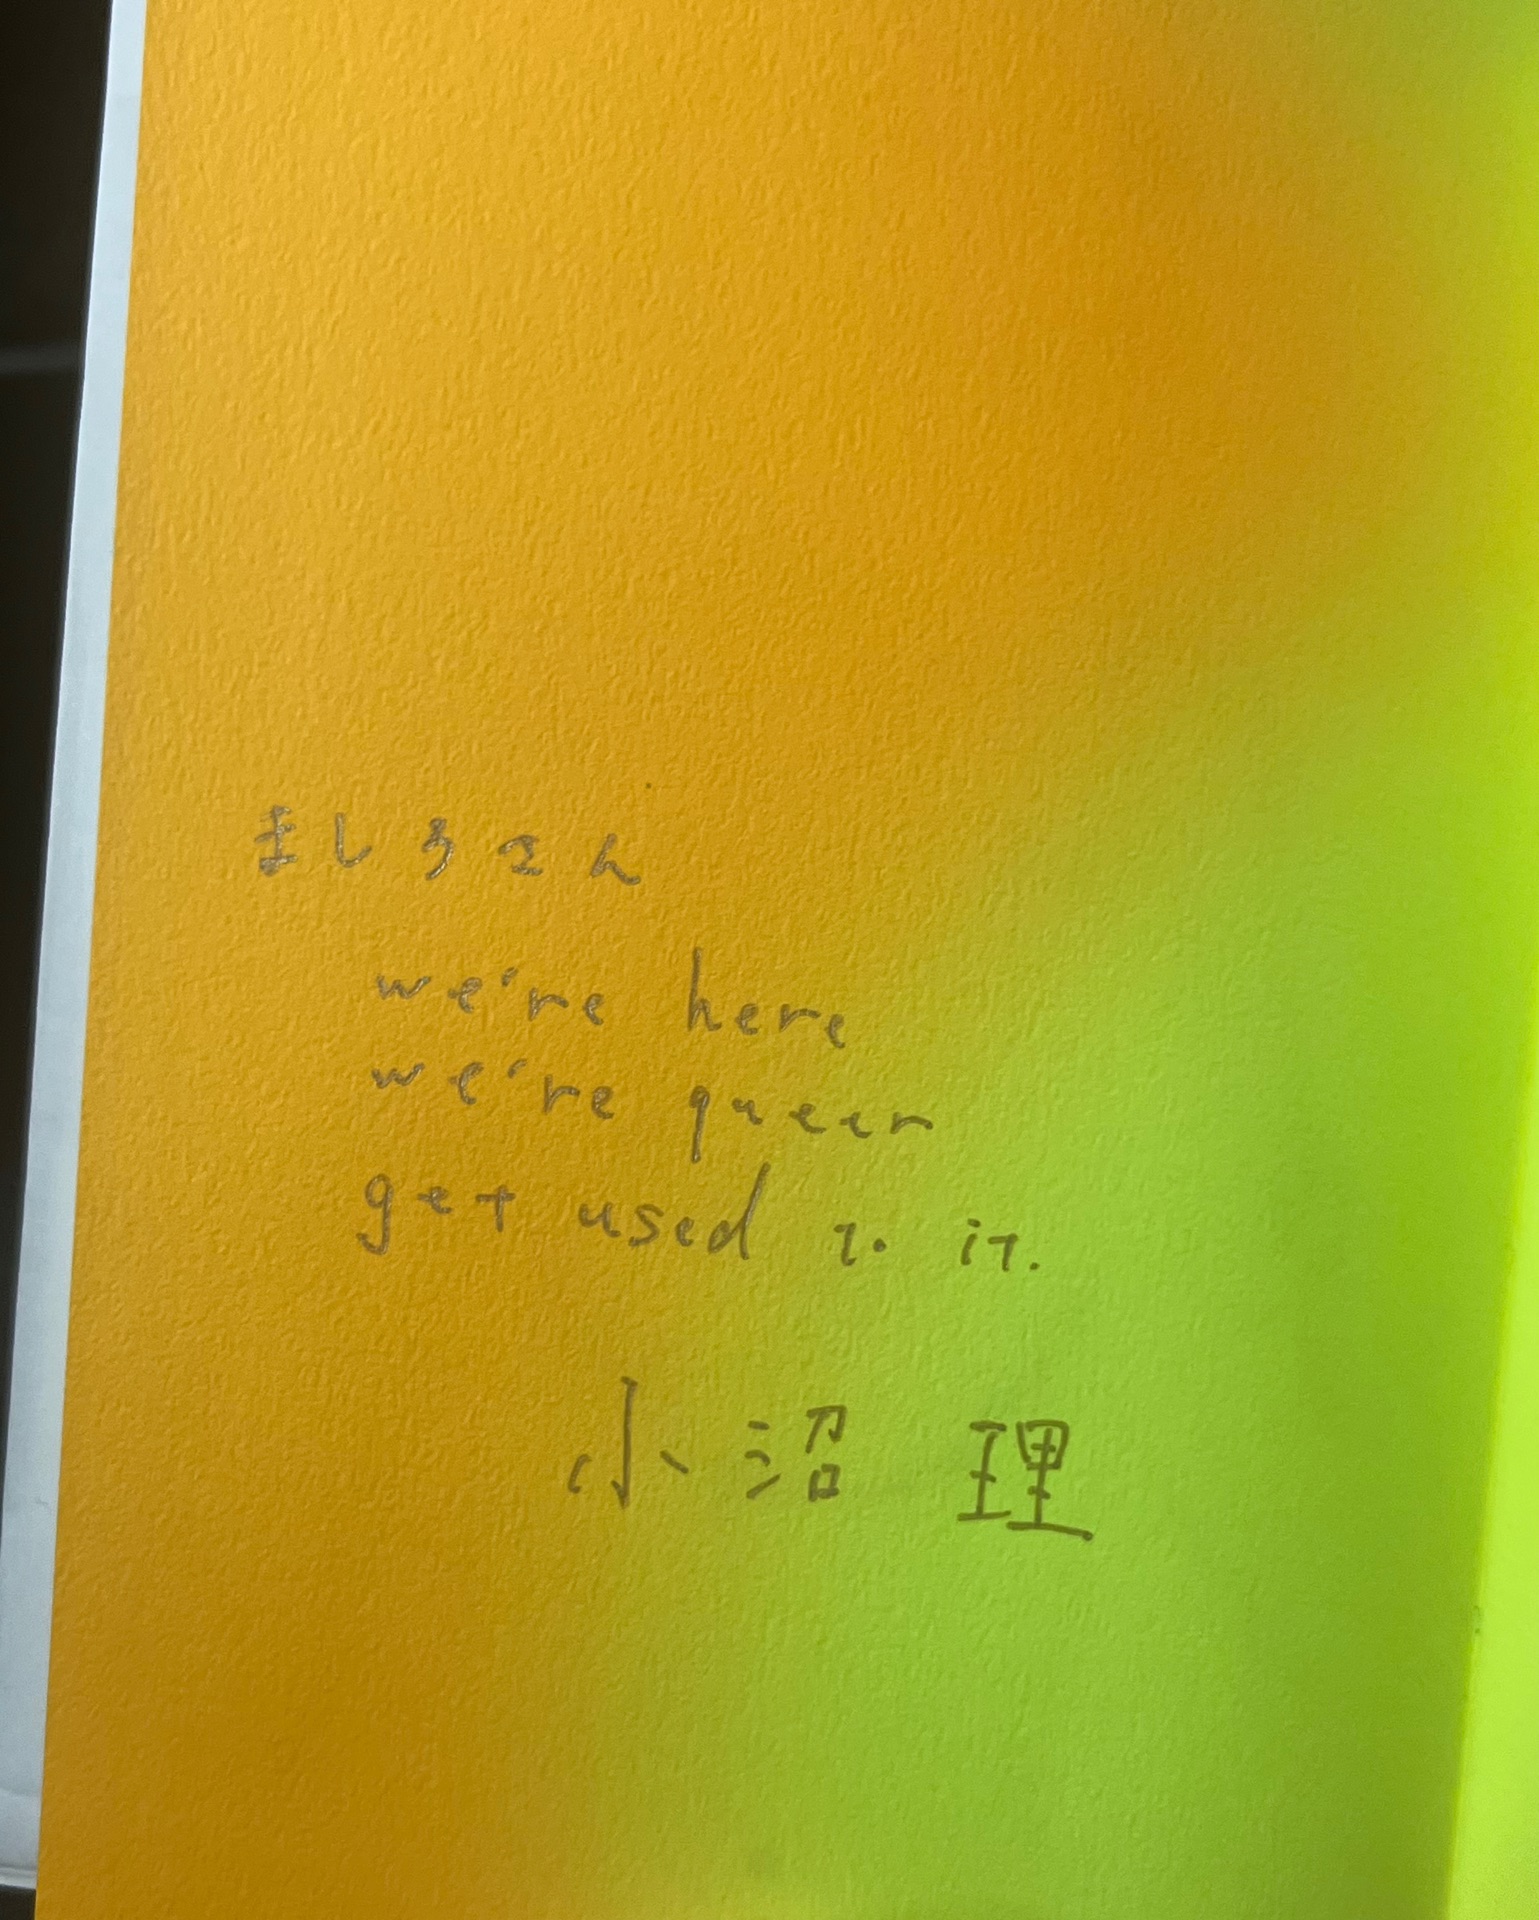 ましろさん
we're here
we're queer
get used to it.
小沼 理